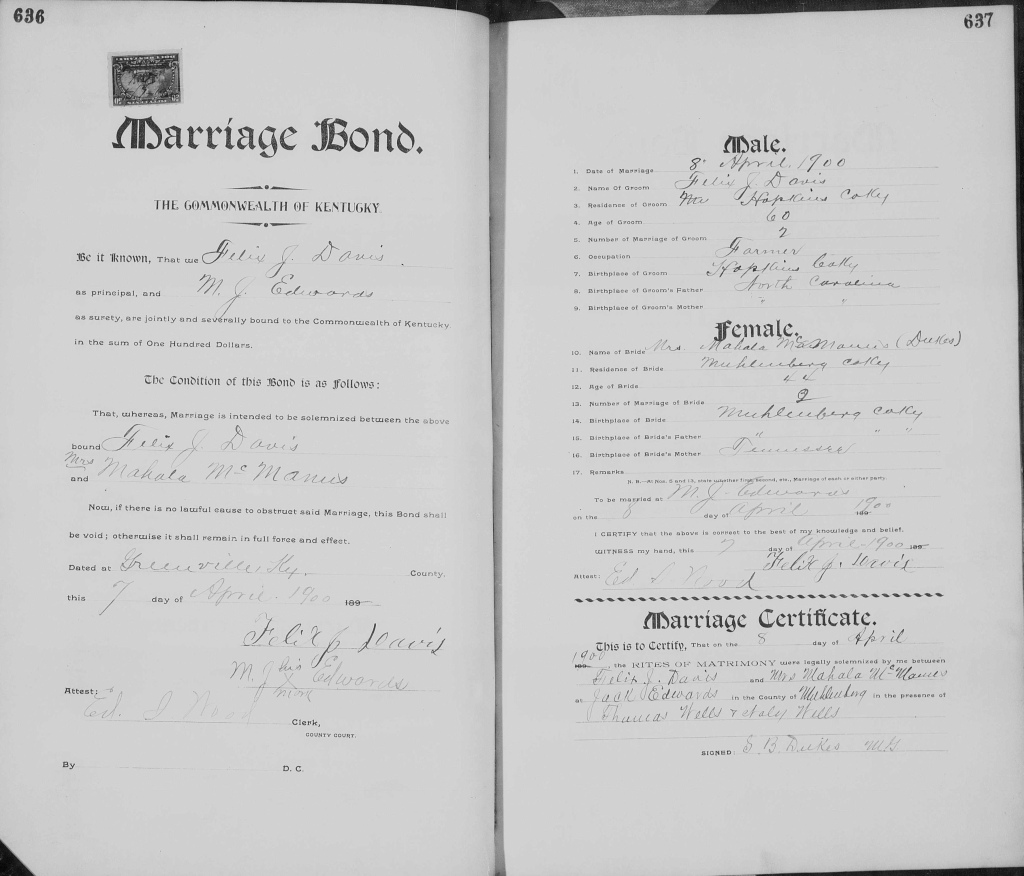 636
Marriage Bond.
THE COMMONWEALTH OF KENTUCKY.
Be it Known, That we Felix J. Davis.
as principal, and M. J. Edwards
as surety, are jointly and severally bound to the Commonwealth of Kentucky
in the sum of One Hundred Dollars.
The Condition of this Bond is as Follows:
That, whereas, Marriage is intended to be solemnized between the above
bound Felix J. Davis
Mrs
and Mahala McManus
Now, if there is no lawful cause to obstruct said Marriage, this Bond shall
be void; otherwise it shall remain in full force and effect.
Dated at Greenville Ky. County.
this 7 day of April. 1900 189
Felix J Davis
M. J his Edwards
X mark
Attest:
Ed. S Wood Clerk,
COUNTY COURT.
By D. C.
637
Male.
1. Date of Marriage 8" April. 1900
2. Name Of Groom Felix J. Davis
3. Residence of Groom Hopkins Co Ky
4. Age of Groom 60
5. Number of Marriage of Groom 2
6. Occupation Farmer
7. Birthplace of Groom Hopkins Co Ky
8. Birthplace of Groom's Father North Carolina
9. Birthplace of Groom's Mother " "
Female.
10. Name of Bride Mrs. Mahala McManus (Dukes)
11. Residence of Bride Muhlenberg Co Ky
12. Age of Bride 44
13. Number of Marriage of Bride 2
14. Birthplace of Bride Muhlenberg Co Ky
15. Birthplace of Bride's Father " " "
16. Birthplace of Bride's Mother Tennessee
17. Remarks
N. B.—At Nos. 5 and 13, state whether first, second, etc., Marriage of each or either party.
To be married at M. J. Edwards
on the 8 day of April 1900 189
I CERTIFY that the above is correct to the best of my knowledge and belief.
WITNESS my hand, this 7 day of April 1900 189
Felix J. Davis
Attest: Ed S Wood
Marriage Certificate.
This is to Certify, That on the 8 day of April
1900
189 , the RITES OF MATRIMONY were legally solemnized by me between
Felix J. Davis and Mrs Mahala McManus
at Jack Edwards in the County of Muhlenberg in the presence of
Thomas Wells & Wells
SIGNED: S. B. Dukes MG